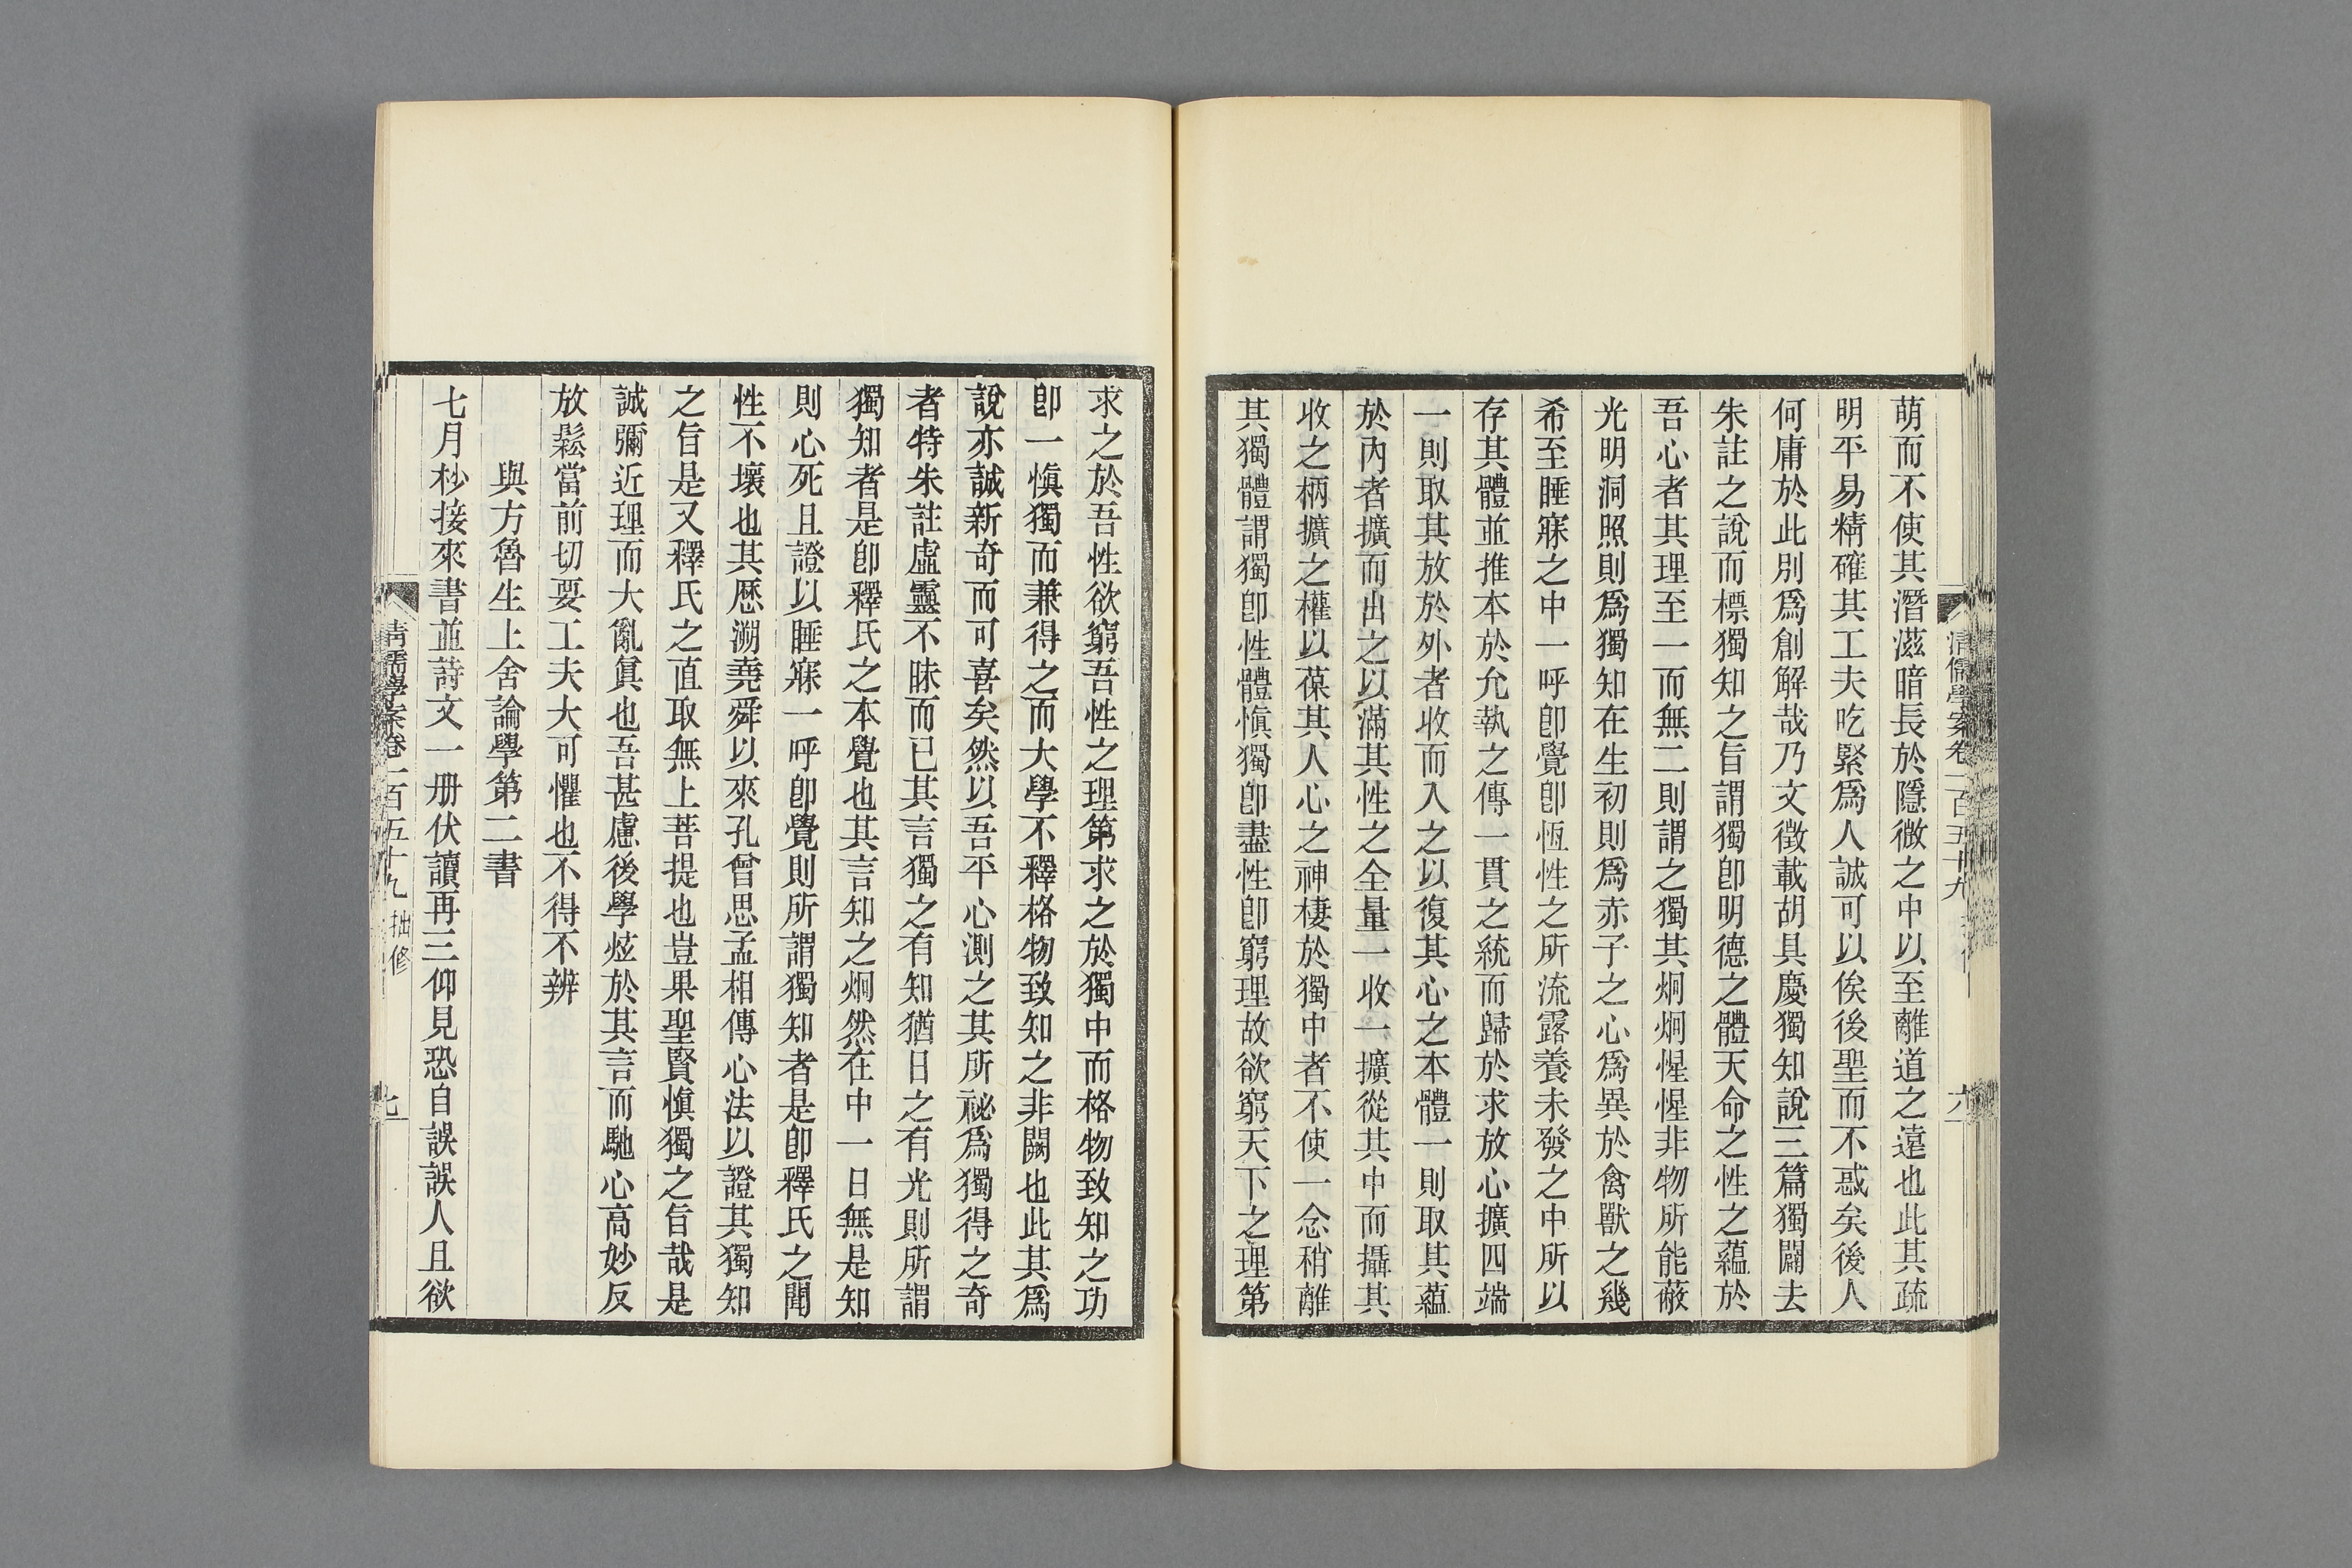 萌而不使其潛滋暗長於隱微之中以至離道之遠也此其疏
明平易精確其工夫吃緊爲人誠可以俟後聖而不惑矣後人
何庸於此別爲創解哉乃文徵載胡具慶獨知說三篇獨闢去
朱註之說而標獨知之旨謂獨卽明德之體天命之性之蘊於
吾心者其理至一而無二則謂之獨其炯炯惺惺非物所能蔽
光明洞照則爲獨知在生初則爲赤子之心爲異於禽獸之幾
希至睡寐之中一呼卽覺卽恆性之所流露養未發之中所以
存其體並推本於允執之傳一貫之統而歸於求放心擴四端
一則取其放於外者收而入之以復其心之本體一則取其蘊
於內者擴而出之以滿其性之全量一收一擴從其中而攝其
收之柄擴之權以葆其人心之神棲於獨中者不使一念稍離
其獨體謂獨卽性體愼獨卽盡性卽窮理故欲窮天下之理第
清儒學案卷一百五十九
六
求之於吾性欲窮吾性之理第求之於獨中而格物致知之功
卽一愼獨而兼得之而大學不釋格物致知之非闕也此其爲
說亦誠新奇而可喜矣然以吾平心測之其所祕爲獨得之奇
者特朱註虛靈不昧而已其言獨之有知猶日之有光則所謂
獨知者是卽釋氏之本覺也其言知之炯然在中一日無是知
則心死且證以睡寐一呼卽覺則所謂獨知者是卽釋氏之聞
性不壞也其歷溯堯舜以來孔曾思孟相傳心法以證其獨知
之旨是又釋氏之直取無上菩提也豈果聖賢愼獨之旨哉是
誠彌近理而大亂眞也吾甚慮後學炫於其言而馳心高妙反
放鬆當前切要工夫大可懼也不得不辨
與方魯生上舍論學第二書
七月杪接來書並詩文一册伏讀再三仰見恐自誤誤人且欲
清儒學案卷一百五十九 拙修
七